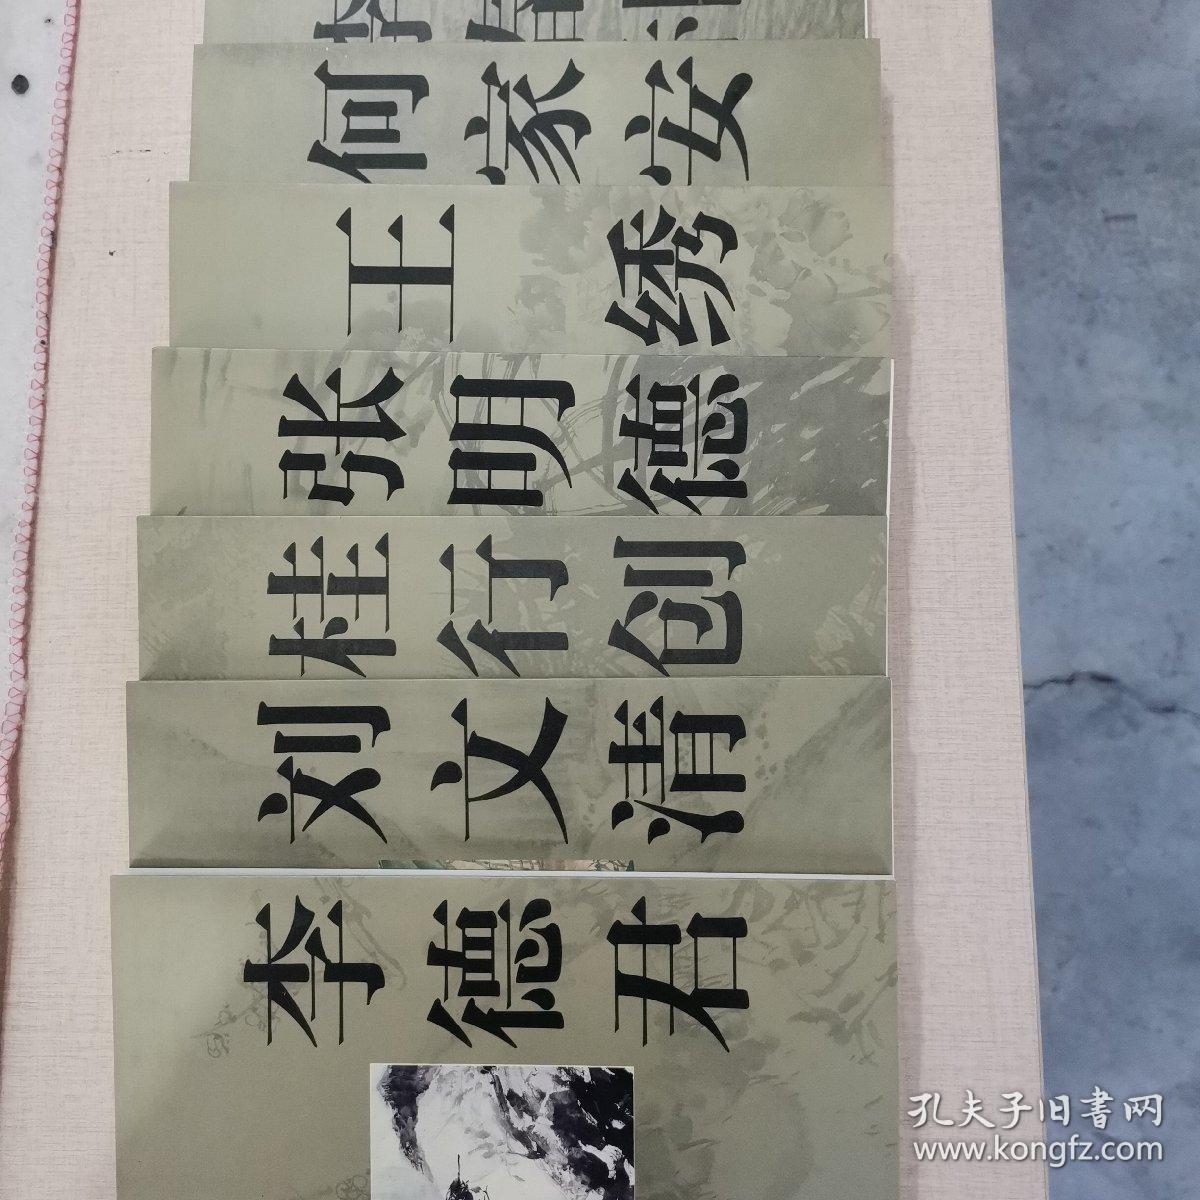 何家安
王绣
张明德
桂行创
刘文清
李德君
孔夫子旧書网
www.kongfz.com